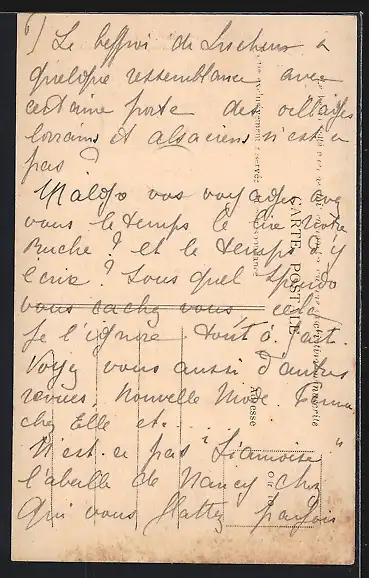 6) Le beffroi de Lucheux a
quelque ressemblance avec
certaine porte des villages
lorrains et alsaciens n'est-ce
pas?
Malgré vos voyages avez
vous le temps de lire notre
Ruche? et le temps d'y
écrire? Sous quel pseudo
vous cachez vous, cela
je l'ignore tout à fait.
Voyez vous aussi d'autres
revues. Nouvelle Mode Fémina
chez Elle et...
N'est-ce pas "Siamoise"
l'abeille de Nancy chez
qui vous flattez parfois
CARTE POSTALE
Adresse